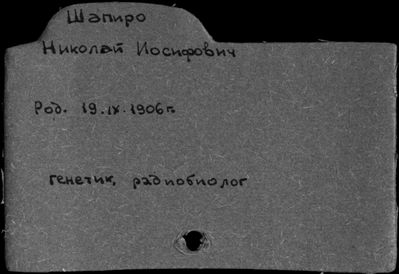 Шапиро
Николай Иосифович
Род. 19.IX.1906 г.
генетик, радиобиолог